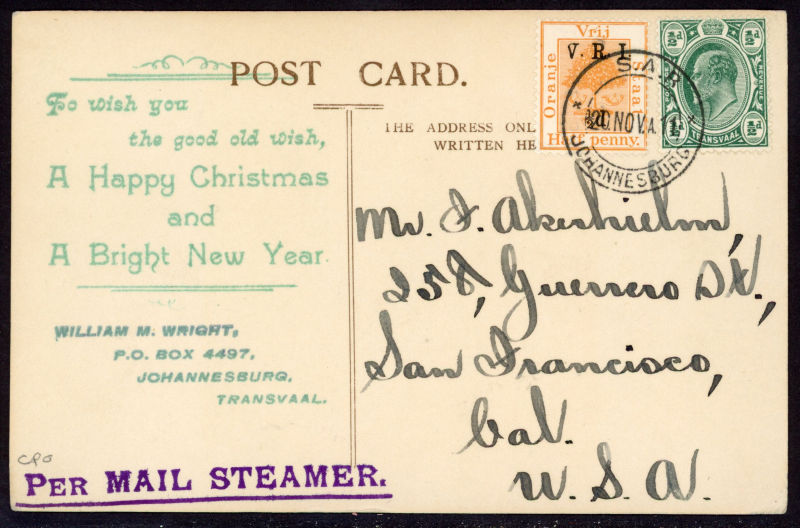 POST CARD.
To wish you
the good old wish,
A Happy Christmas
and
A Bright New Year.
WILLIAM M. WRIGHT,
P.O. BOX 4497,
JOHANNESBURG,
TRANSVAAL.
PER MAIL STEAMER.
THE ADDRESS ONL
WRITTEN HE
Vrij
Oranje
Staat
V. R. I.
½d
Half penny.
½d
½d
½d
½d
REVENUE
TRANSVAAL
S.A.R
20 NOV A 11
JOHANNESBURG
Mr. J. Akerhielm,
258, Guerrero St.,
San Francisco,
Cal.
U. S. A.